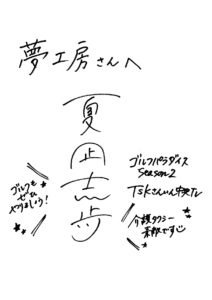 夢工房さんへ
夏
志
歩
ゴルフも
ぜひ
やりましょう!
ゴルフパラダイス
Season2
TSKさんいん中央TV
介護タクシー
素敵です